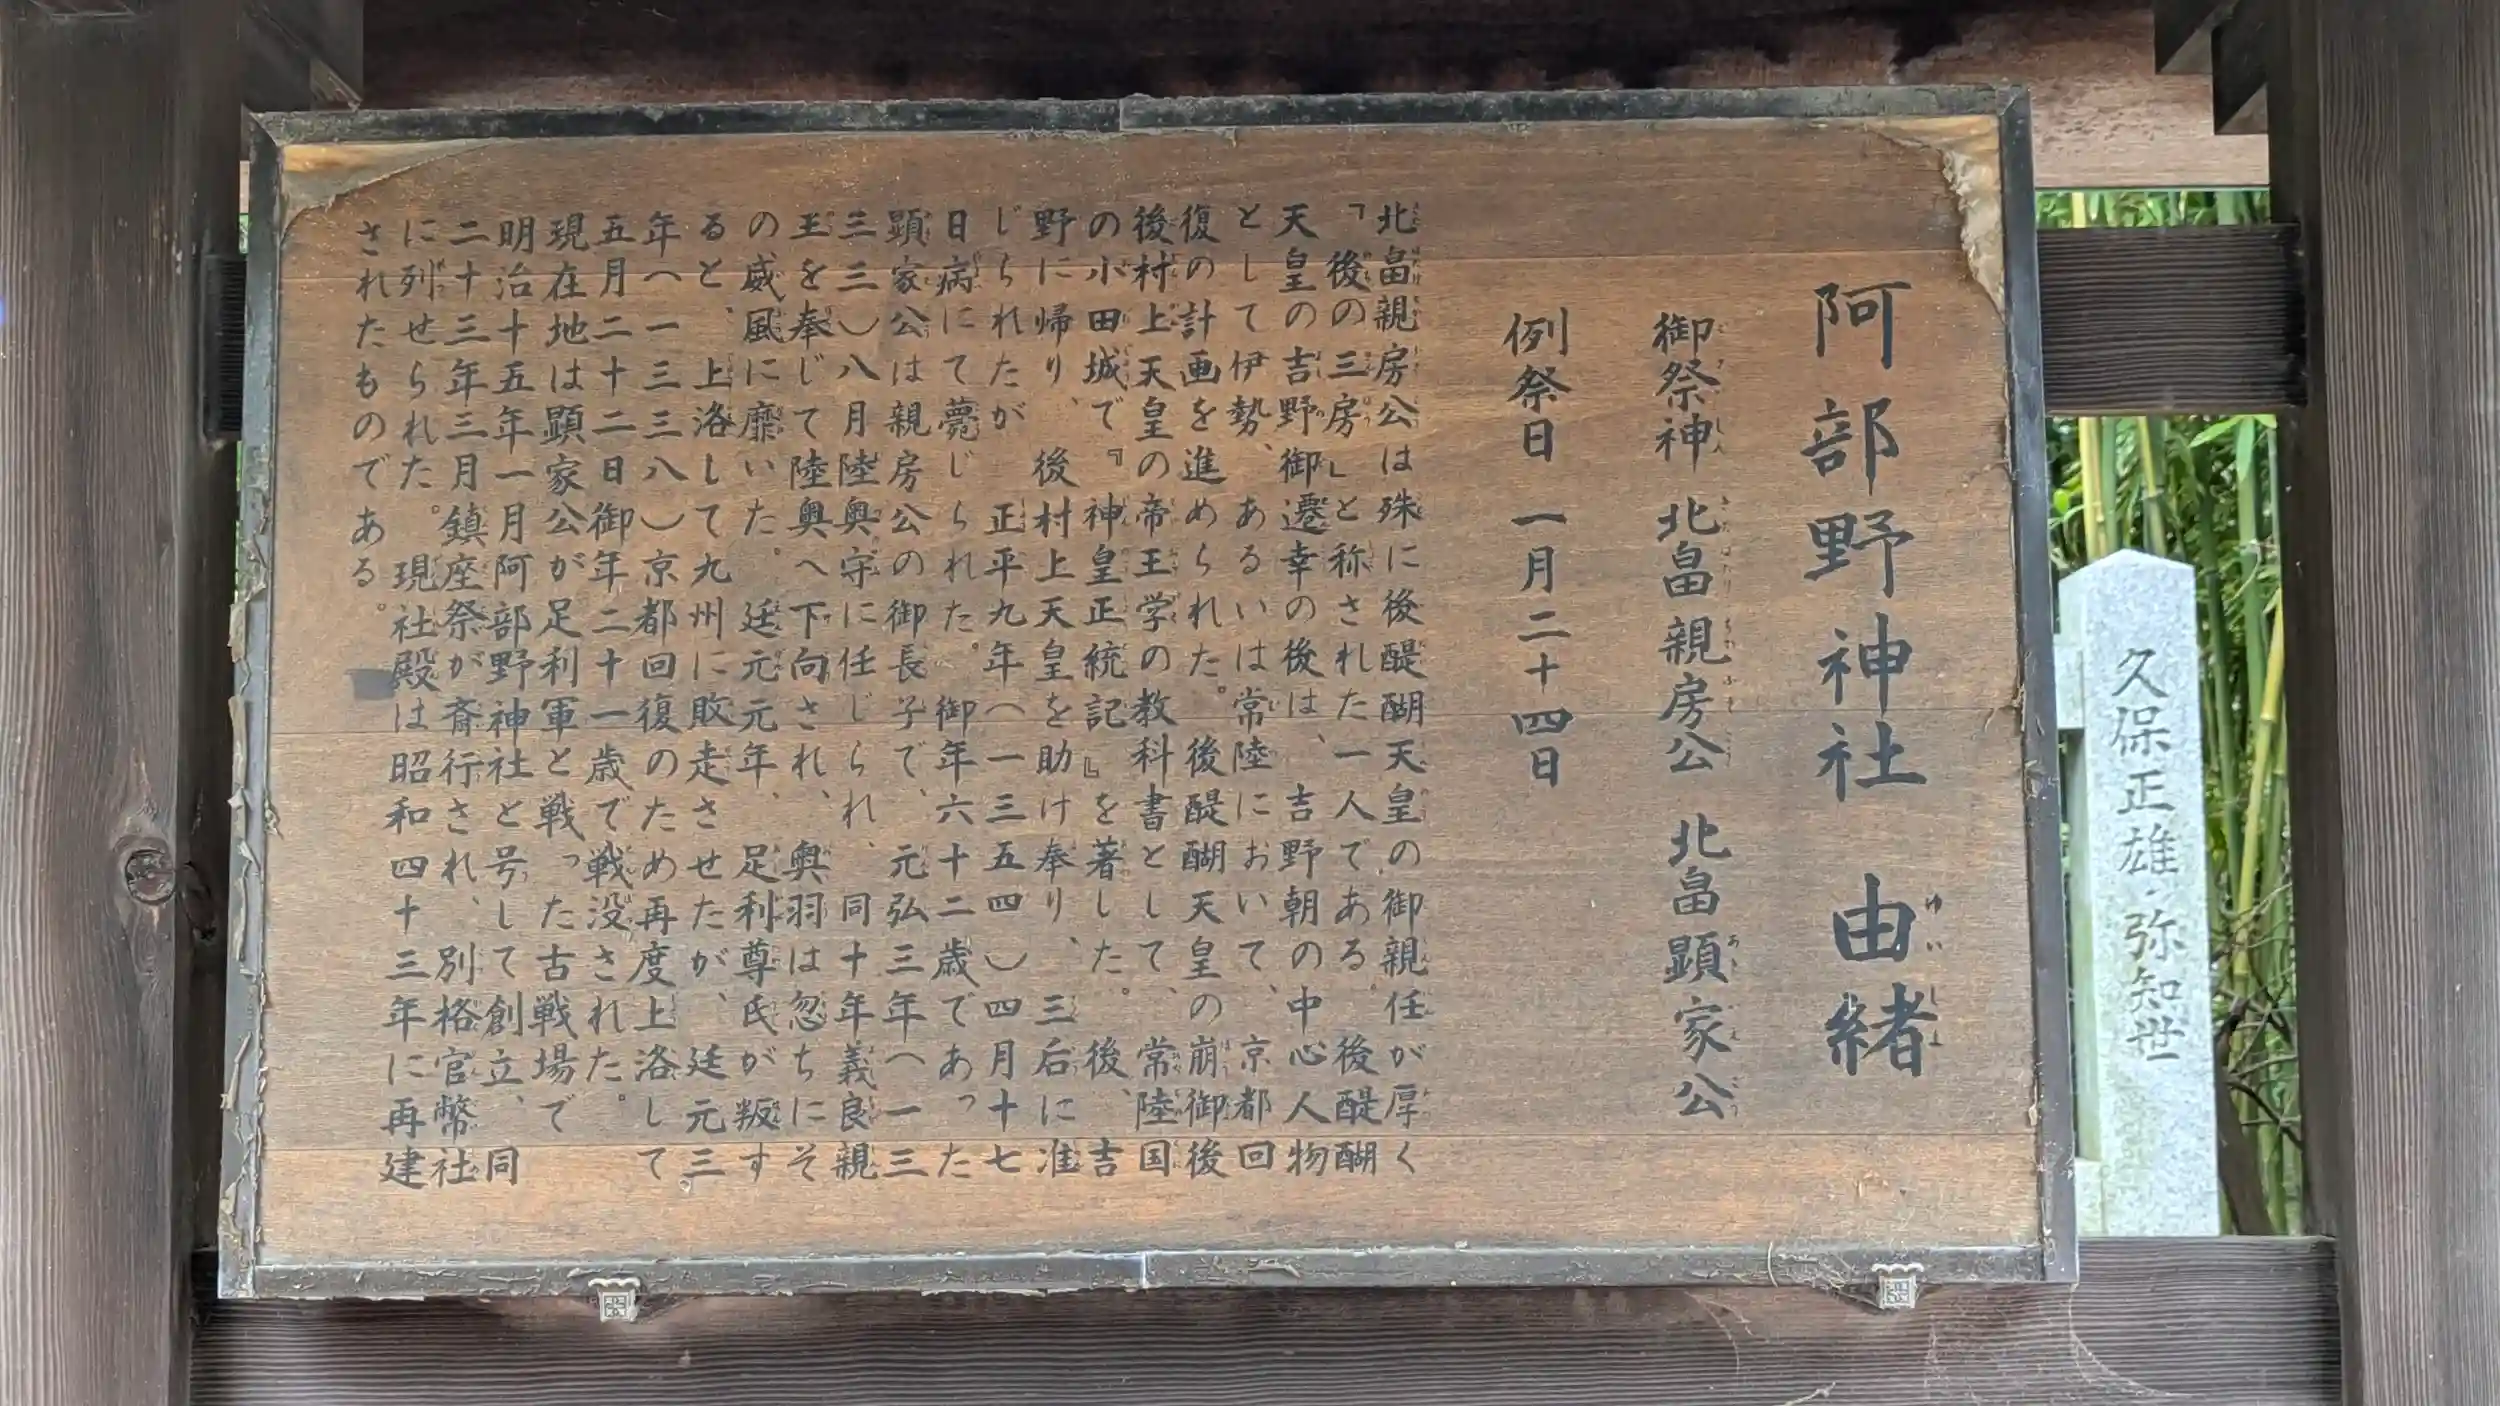 阿部野神社 由緒
御祭神 北畠親房公 北畠顕家公
例祭日 一月二十四日
北畠親房公は殊に後醍醐天皇の御親任が厚く
『後の三房』と称された一人である。後醍醐
天皇の吉野御遷幸の後は、吉野朝の中心人物
として伊勢、あるいは常陸において、京都回
復の計画を進められた。後醍醐天皇の崩御後
後村上天皇の帝王学の教科書として、常陸国
の小田城で『神皇正統記』を著した。後、吉
野に帰り、後村上天皇を助け奉り、三后に准
じられたが 正平九年(一三五四)四月十七
日病にて薨じられた。御年六十二歳であった
顕家公は親房公の御長子で、元弘三年(一三
三三)八月陸奥守に任じられ、同十年義良親
王を奉じて陸奥へ下向され、奥羽は忽ちにそ
の威風に靡いた。廷元元年、足利尊氏が叛す
ると、上洛して九州に敗走させたが、廷元三
年(一三三八)京都回復のため再度上洛して。
五月二十二日御年二十一歳で戦没された。
現在地は顕家公が足利軍と戦った古戦場で
明治十五年一月阿部野神社と号して創立、同
二十三年三月鎮座祭が斎行され、別格官幣社
に列せられた。現社殿は昭和四十三年に再建
されたものである。
久保正雄・弥知世